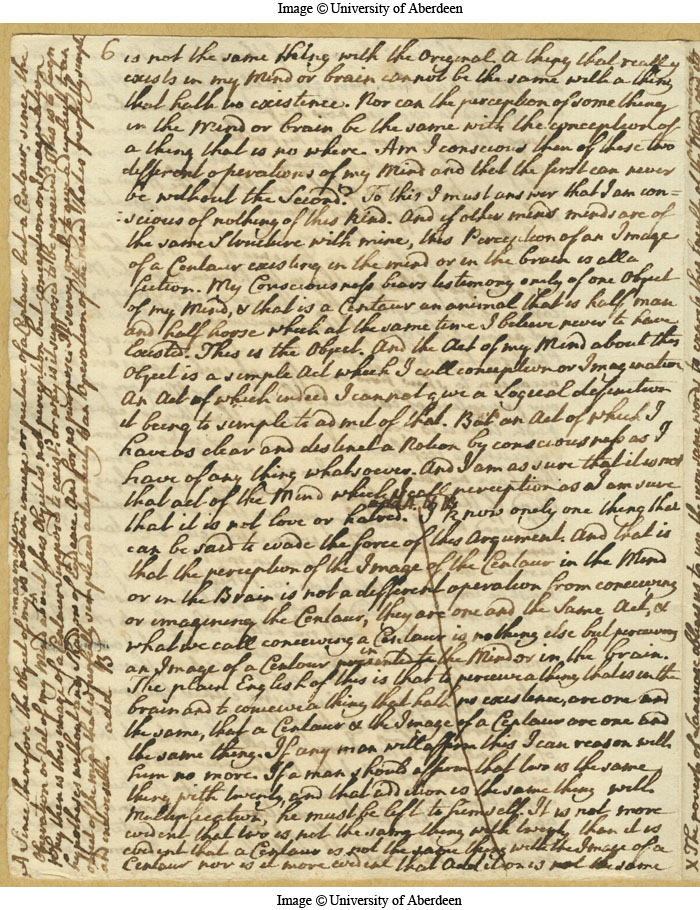 Image © University of Aberdeen
6
is not the same thing with the Original. A thing that really
exists in my Mind or brain cannot be the same with a thing
that hath no existence. Nor can the perception of some thing
in the Mind or brain be the same with the conception of
a thing that is no where. Am I conscious then of these two
different operations of my Mind and that the first can never
be without the Second? To this I must answer that I am con=
:scious of nothing of this kind. And if other minds minds are of
the same Structure with mine, this Perception of an Image
of a Centaur existing in the mind or in the brain is all a
fiction. My Consciousness bears testimony onely of one Object
of my Mind, & that is a Centaur an animal that is half man
and half horse which at the same time I believe never to have
Existed. This is the Object. And the Act of my Mind about this
Object is a simple Act which I call conception or Imagination
An Act of which indeed I cannot give a Logical definition
it being to simple to admit of that. But an Act of which I
have as clear and distinct a Notion by consciousness as I
have of any thing whatsoever. And I am as sure that it is not
that act of the Mind which I call perception as I am sure
that it is not love or hatred. I know onely one thing that
can be said to evade the force of this Argument. And that is
that the perception of the Image of the Centaur in the Mind
or in the Brain is not a different operation from conceiving
or imagining the Centaur, they are one and the Same Act, &
what we call conceiving a Centaur is nothing else but perceiving
an Image of a Centour in the Mind or in the brain.
The plain English of this is that to perceive a thing that is in the
brain and to conceive a thing that hath no existence, are one and
the same, that a Centaur & the Image of a Centaur are one and
the same thing. If any man will affirm this I can reason with
him no more. If a man should affirm that two is the same
thing with twenty, and that addition is the same thing with
Multiplication, he must be left to himself. It is not more
evident that two is not the same thing with twenty than it is
evident that a Centaur is not the same thing with the Image of a
Centaur nor is it more evident that Addition is not the same
A Since therefore the Object of my is not an image or picture of a Centaur but a Centaur; since the
Operation or Act of my Mind about this Object is not perception but conception or imagination
Why then is this image of a Centaur
and
add B
Image © University of Aberdeen